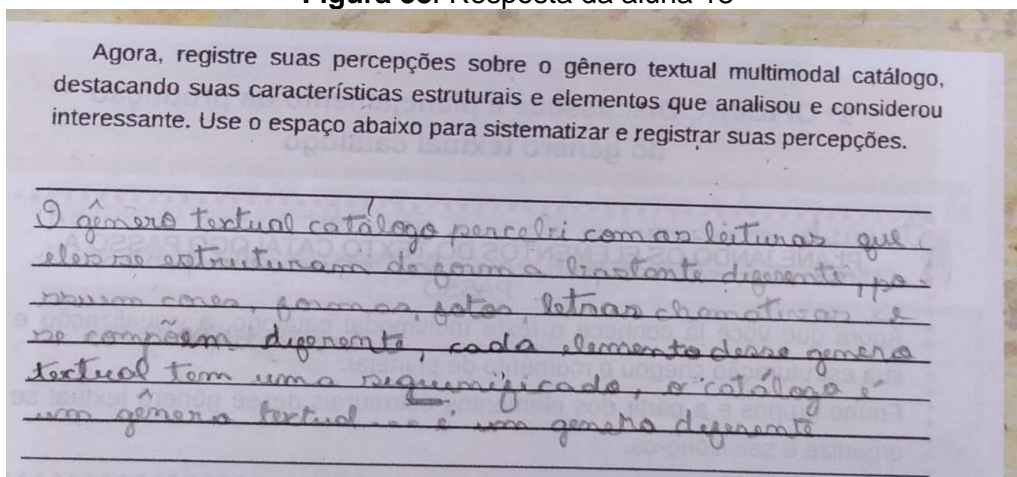 Agora, registre suas percepções sobre o gênero textual multimodal catálogo,
destacando suas características estruturais e elementos que analisou e considerou
interessante. Use o espaço abaixo para sistematizar e registrar suas percepções.
O gênero textual catálogo percebi com as leituras que
eles se estruturam de forma bastante diferente, po-
ssuem cores, formas, fotos, letras chamativas e
se compõem diferente, cada elemento desse genero
textual tem uma seguinificado, o catálogo é
um gênero textual é um genero deferente